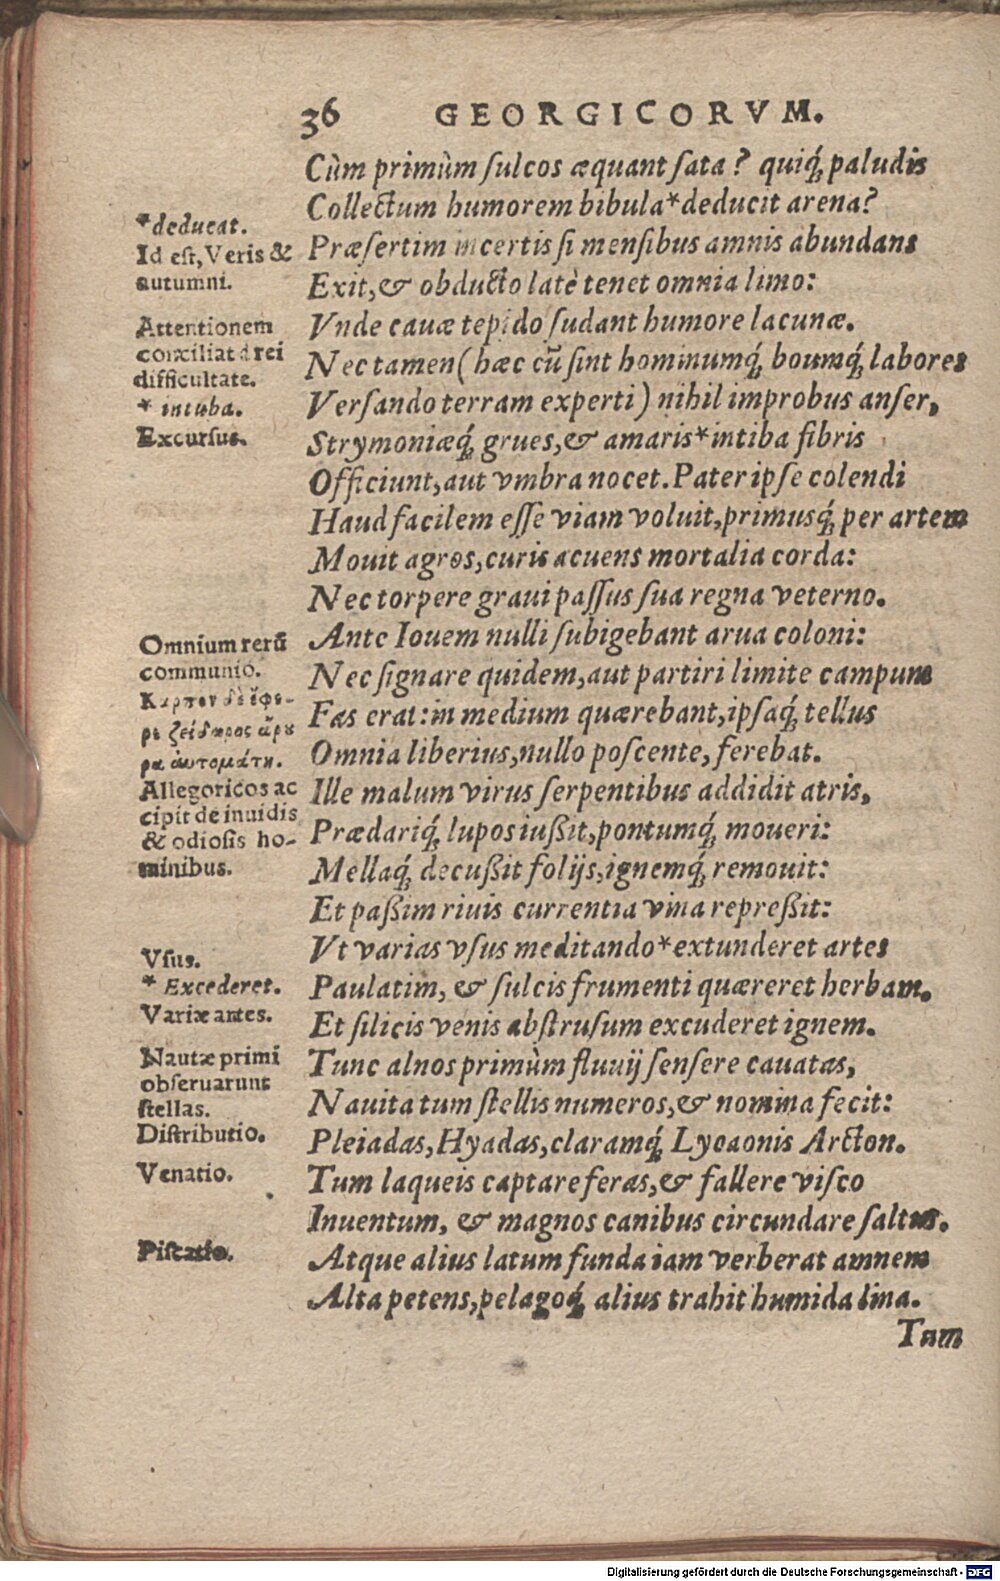 36 GEORGICORVM.
Cùm primùm ſulcos æquant ſata? quiq́; paludis
Collectum humorem bibula*deducit arena?
Præſertim incertis ſi menſibus amnis abundans
Exit, & obducto latè tenet omnia limo:
Vnde cauæ tepido ſudant humore lacunæ.
Nec tamen (hæc cũ ſint hominumq́; boumq́; labores
Verſando terram experti) nihil improbus anſer,
Strymoniæq́; grues, & amaris*intiba fibris
Officiunt, aut vmbra nocet. Pater ipſe colendi
Haud facilem eſſe viam voluit, primusq́; per artem
Mouit agros, curis acuens mortalia corda:
Nec torpere graui paſſus ſua regna veterno.
Ante Iouem nulli ſubigebant arua coloni:
Nec ſignare quidem, aut partiri limite campum
Fas erat: in medium quærebant, ipſaq́; tellus
Omnia liberius, nullo poſcente, ferebat.
Ille malum virus ſerpentibus addidit atris,
Prædariq́; lupos iußit, pontumq́; moueri:
Mellaq́; decußit folijs, ignemq́; remouit:
Et paßim riuis currentia vina repreßit:
Vt varias vſus meditando*extunderet artes
Paulatim, & ſulcis frumenti quæreret herbam.
Et ſilicis venis abſtruſum excuderet ignem.
Tunc alnos primùm fluuij ſenſere cauatas,
Nauita tum ſtellis numeros, & nomina fecit:
Pleiadas, Hyadas, claramq́; Lycaonis Arcton.
Tum laqueis captare feras, & fallere viſco
Inuentum, & magnos canibus circundare ſaltus.
Atque alius latum funda iam verberat amnem
Alta petens, pelagoq́; alius trahit humida lina.
Tum
*deducat.
Id eſt, Veris &
autumni.
Attentionem
conciliat à rei
difficultate.
* intuba.
Excurſus.
Omnium rerũ
communio.
Καρπὸν δ' ἔφε-
ρε ζείδωρος ἄρου
ρα ἀυτομάτη.
Allegoricos ac
cipit de inuidis
& odioſis ho-
minibus.
Vſus.
* Excederet.
Variæ artes.
Nautæ primi
obſeruarunt
ſtellas.
Diſtributio.
Venatio.
Piſcatio.
Digitalisierung gefördert durch die Deutsche Forschungsgemeinschaft - DFG